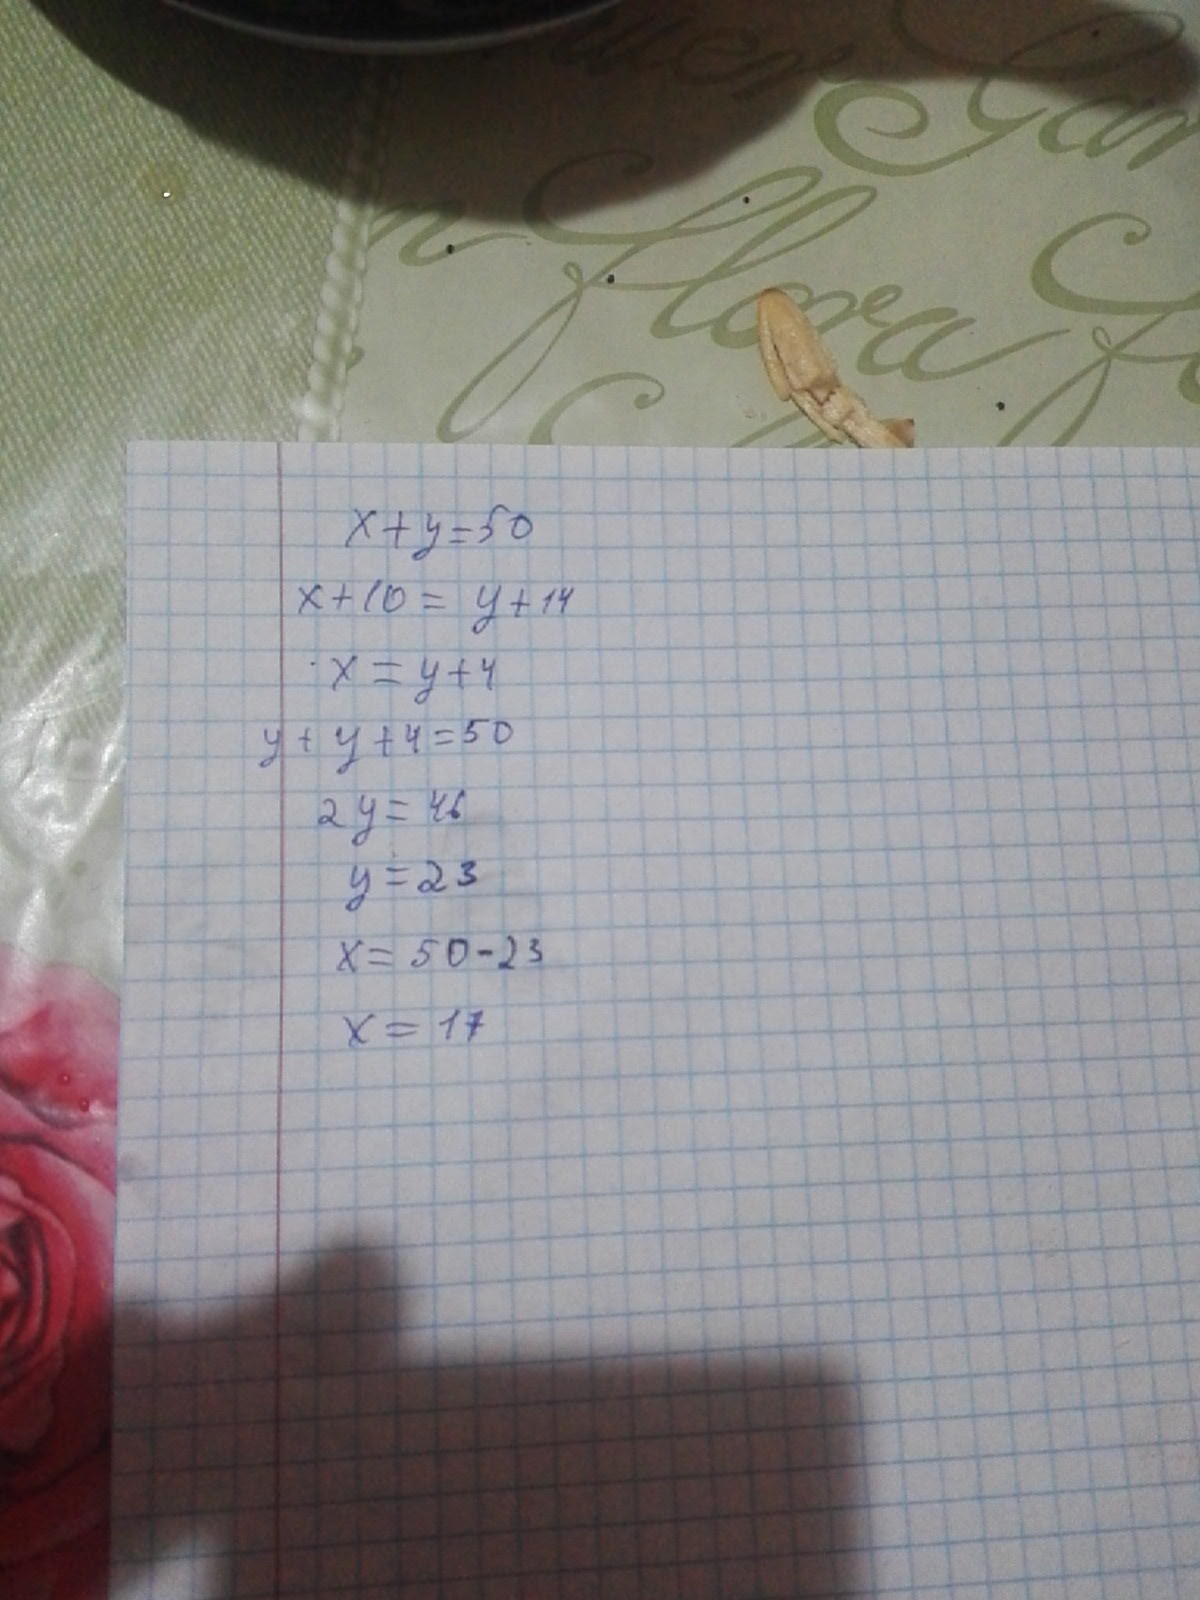 flora
x+y=50
x+10=y+14
x=y+4
y+y+4=50
2y=46
y=23
x=50-23
x=17